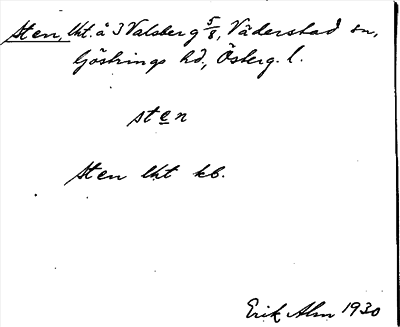 Sten, lht. å 3 Valsberg 5/8, Väderstad sn,
Göstrings hd, Österg. l.
sten
Sten lht kb.
Erik Alm 1930